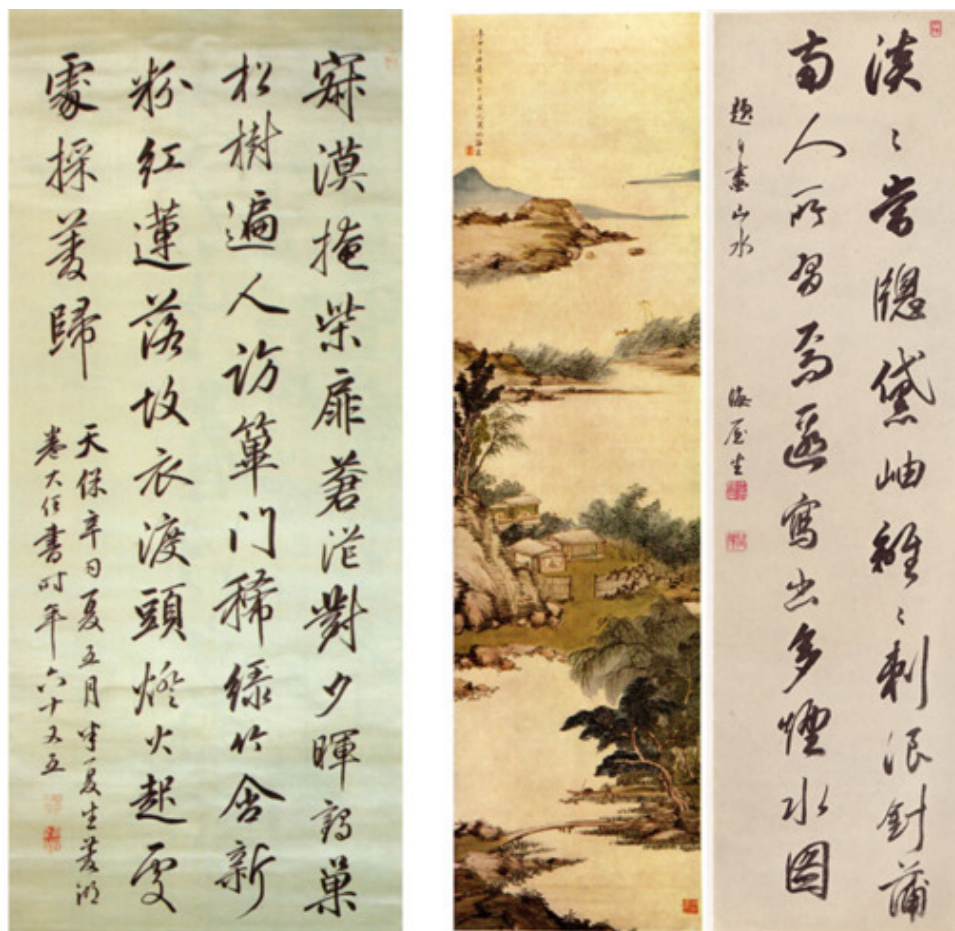 寂漠掩柴扉蒼茫對夕暉鶴巢
松樹遍人訪蓽門稀綠竹含新
粉紅蓮落故衣渡頭燈火起處
處採菱歸
天保辛丑夏五月半夏生菱湖
卷大任書時年六十又五
淡々當牕黛岫離々刺浪針蒲
南人所習焉寫出多煙水圖
題自畫山水
海屋生